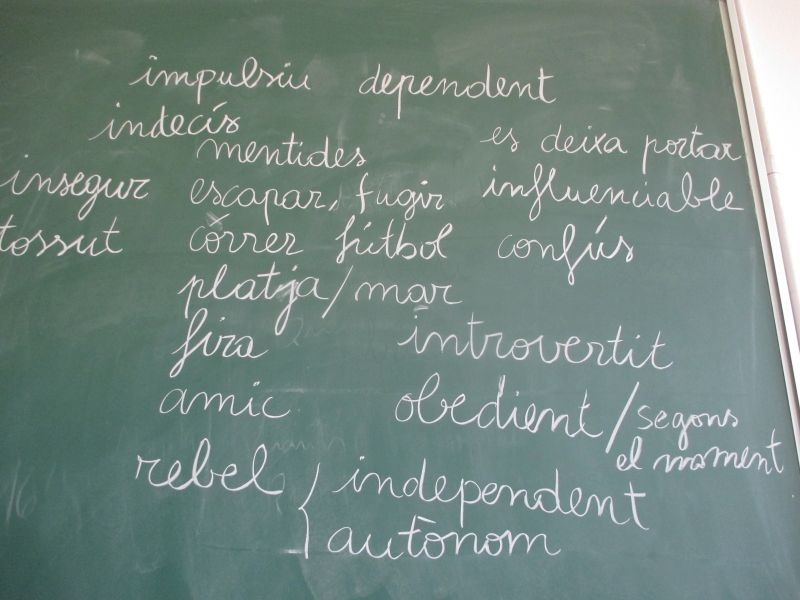 impulsiu dependent
indecís
mentides es deixa portar
insegur escapar, fugir influenciable
tossut córrer fútbol confús
platja/mar
fira introvertit
amic obedient/segons
el moment
rebel { independent
autònom